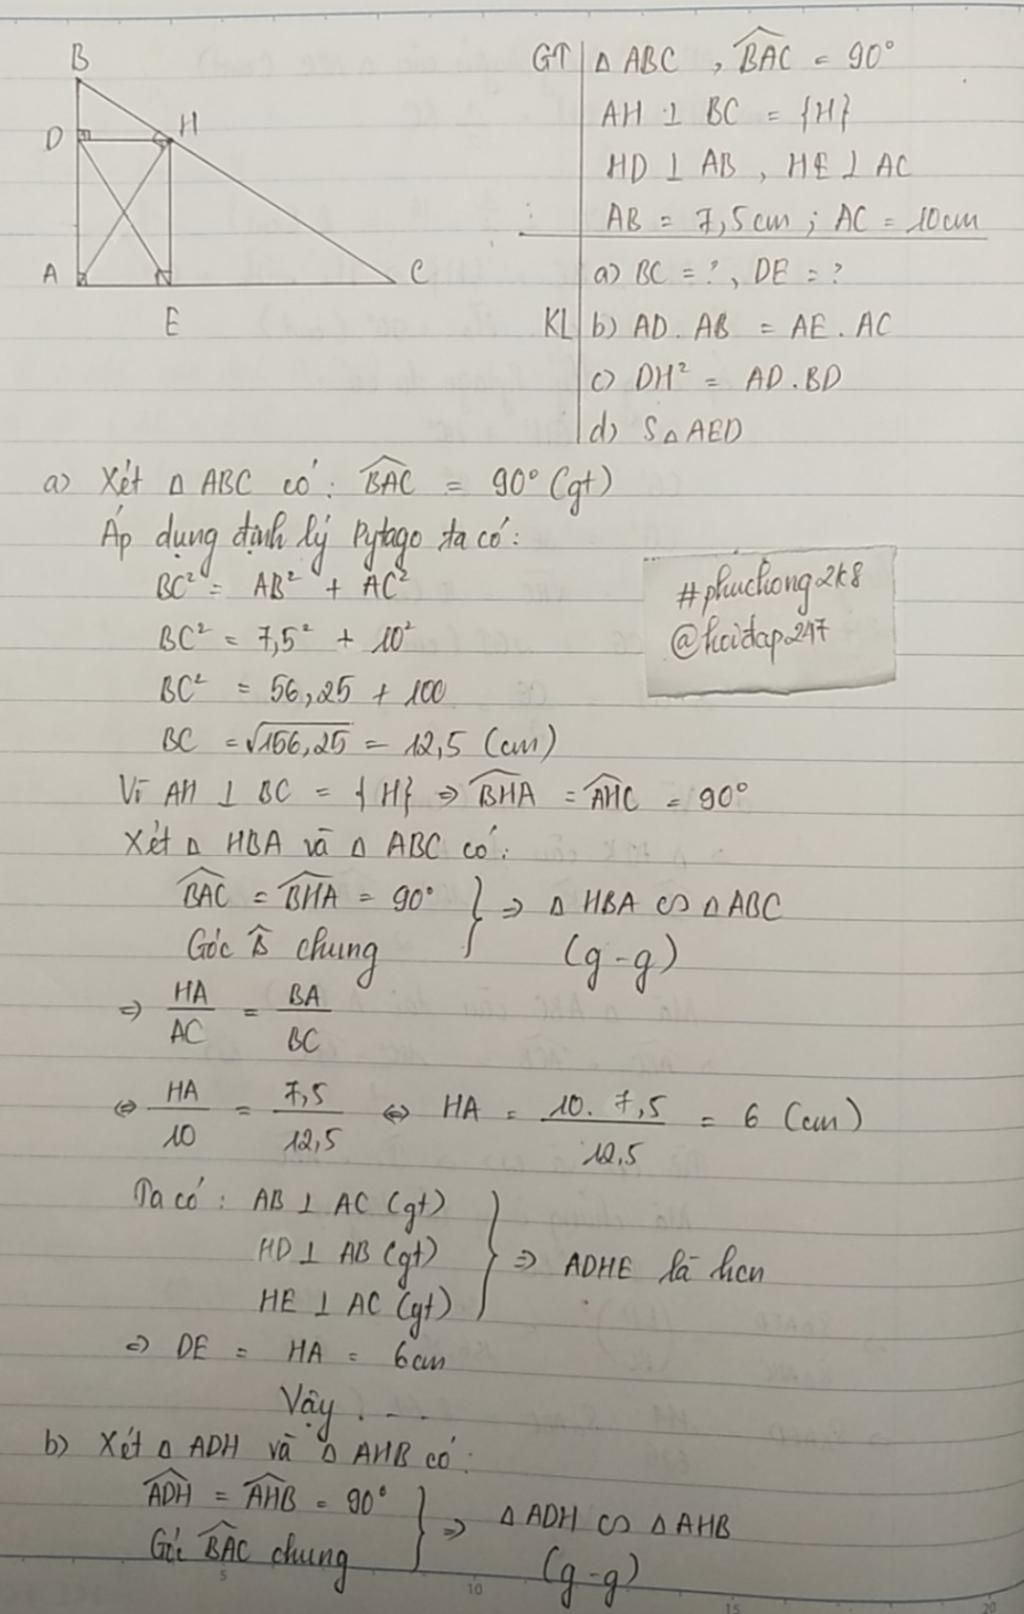 B
D
H
A
E
C
GT | Δ ABC , \widehat{BAC} = 90°
AH ⊥ BC = {H}
HD ⊥ AB , HE ⊥ AC
AB = 7,5cm ; AC = 10cm
a) BC = ? , DE = ?
KL | b) AD . AB = AE . AC
c) DH² = AD . BD
d) S Δ AED
a) Xét Δ ABC có : \widehat{BAC} = 90° (gt)
Áp dụng định lý Pytago ta có :
BC² = AB² + AC²
BC² = 7,5² + 10²
BC² = 56,25 + 100
BC = √156,25 = 12,5 (cm)
#phuchong2k8
@hoidap247
Vì AH ⊥ BC = {H} ⇒ \widehat{BHA} = \widehat{AHC} = 90°
Xét Δ HBA và Δ ABC có :
\widehat{BAC} = \widehat{BHA} = 90° } ⇒ Δ HBA ∽ Δ ABC
Góc B̂ chung (g-g)
⇒ HA/AC = BA/BC
⇔ HA/10 = 7,5/12,5 ⇔ HA = 10. 7,5/12,5 = 6 (cm)
Ta có : AB ⊥ AC (gt)
HD ⊥ AB (gt) } ⇒ ADHE là hcn
HE ⊥ AC (gt)
⇒ DE = HA = 6cm
Vậy . - -
b) Xét Δ ADH và Δ AHB có :
\widehat{ADH} = \widehat{AHB} = 90° } ⇒ Δ ADH ∽ Δ AHB
Góc \widehat{BAC} chung (g-g)
5 10 15 20